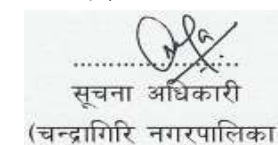 ....................
सूचना अधिकारी
(चन्द्रागिरि नगरपालिका